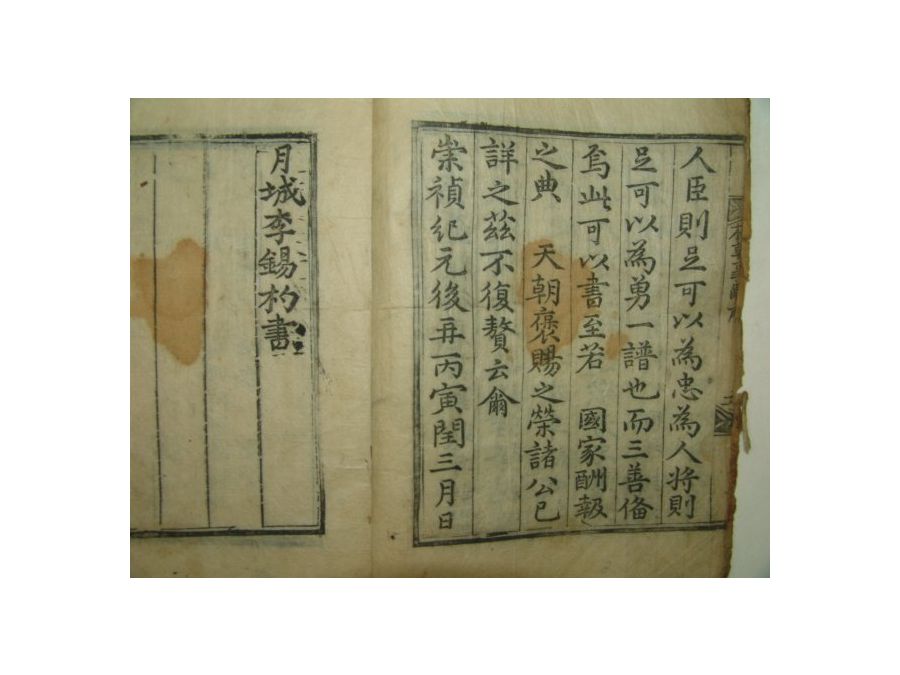 人臣則足可以為忠為人將則
足可以為勇一譜也而三善俻
焉此可以書至若 國家酬報
之典 天朝襃賜之榮諸公已
詳之茲不復贅云爾
崇禎紀元後再丙寅閏三月日
月城李錫杓書